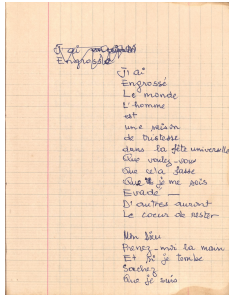 J'ai
Engrossé
J'ai
Engrossé
Le monde
L'homme
est
une saison
de tristesse
dans la fête universelle
Que voulez-vous
Que cela fasse
Que je me sois
Evadé —
D'autres auront
Le coeur de rester
Mon Dieu
Prenez-moi la main
Et si je tombe
Sachez
Que je suis